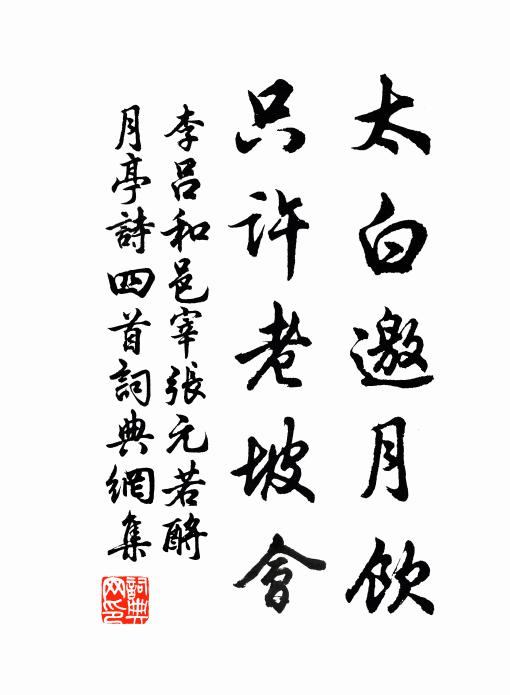 太白邀月飲
只許老坡會
李呂和邑宰張元若酹
月亭詩四首詞典網集
詞典
网印